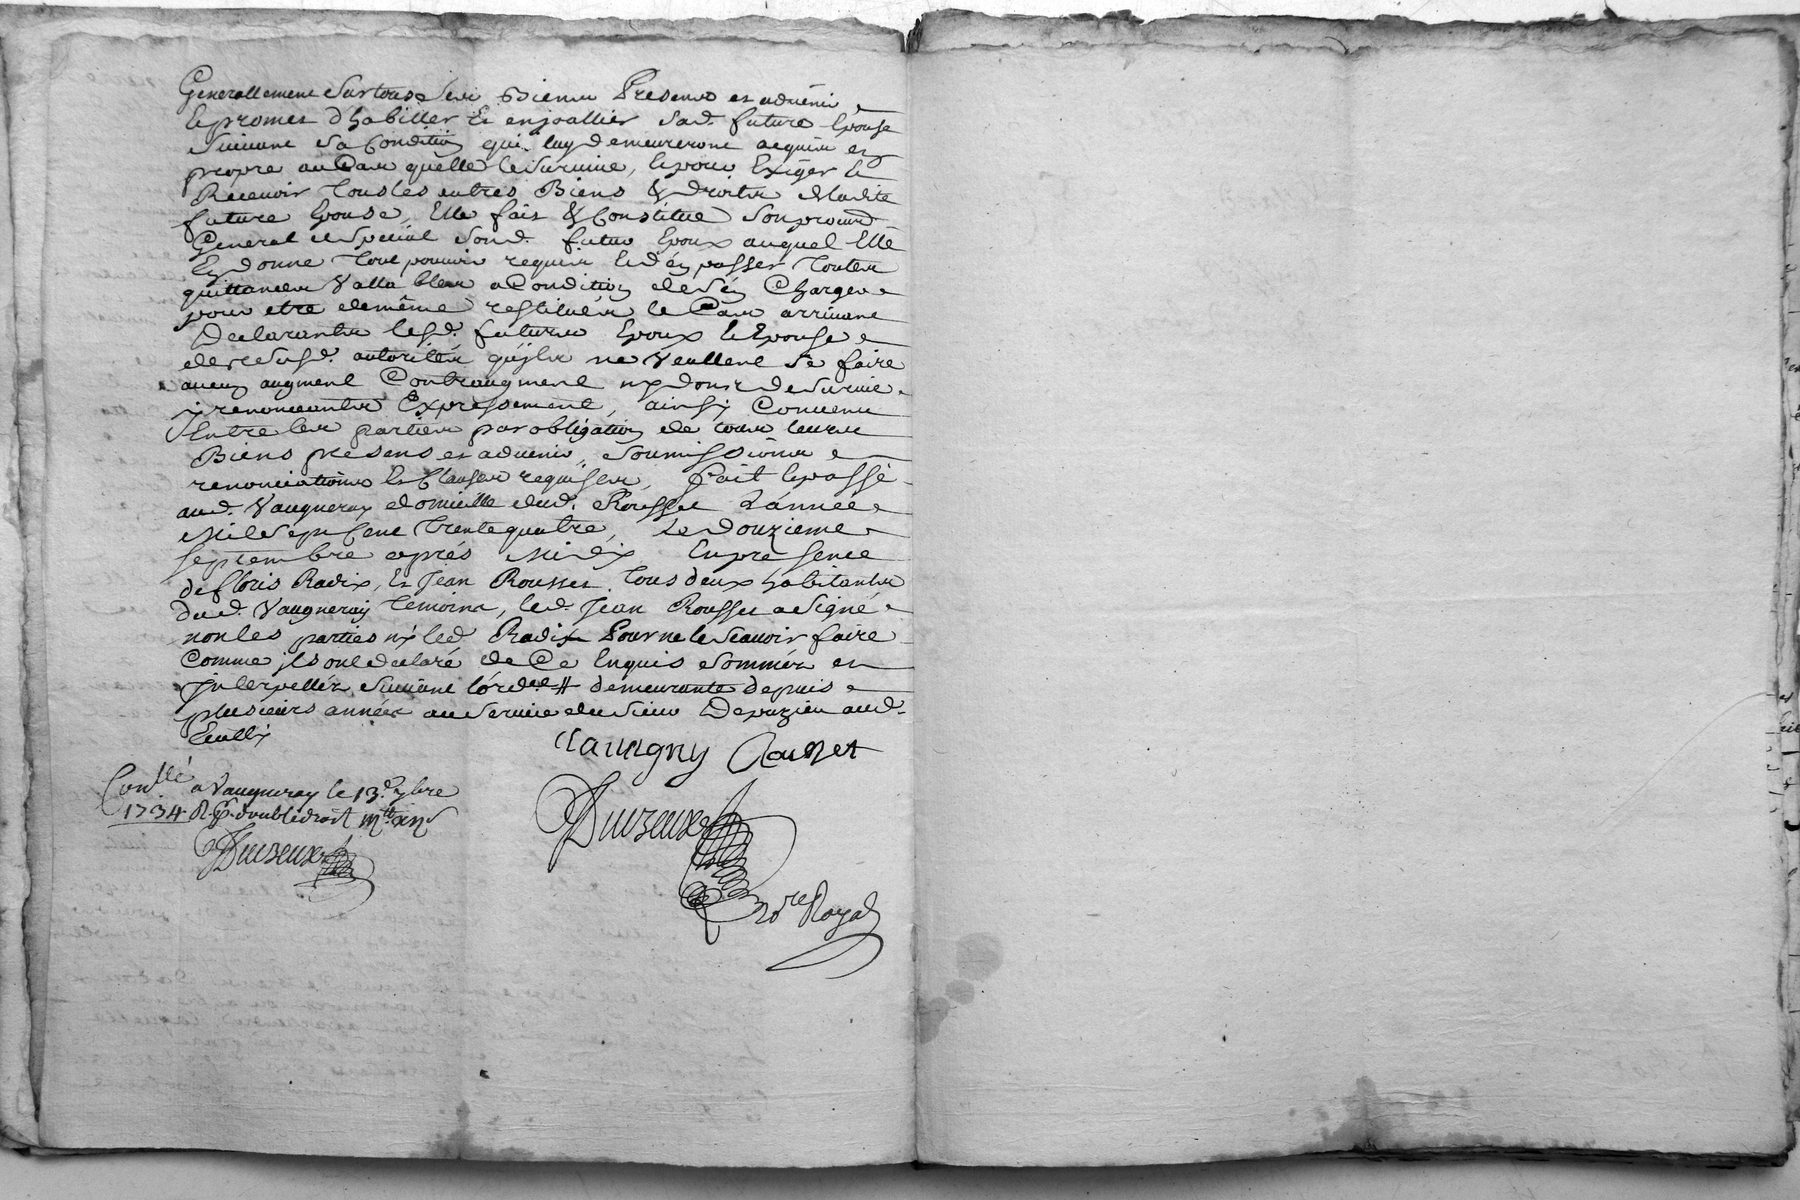 Generallement sur tous ses Biens Presens et advenir
et promet d'habiller et enjoallier sad. future Epouse
suivant sa Condition qui luy demeureront acquis en
propre au Cas quelle le survive, et pour Exiger et
Recevoir Tous les autres Biens & droits de ladite
future Epouse, Elle fait & Constitue son procur.
General et special sond. futur Epoux auquel Elle
En donne Tout pouvoir requis et d'en passer Toutes
quittances Vallables a Condition de s'en Charger
pour etre de même restitués le Cas arrivant
Declarants lesd. futurs Epoux et Epouse
de susd. autorités qu'ils ne Veullent se faire
aucun augment Contraugment ny dons de survie
y renonceants Expressement, ainsy Convenu
Entre les parties par obligation de tous leurs
Biens presens et advenir, soumissions
renonciations et Clauses requises, fait et passé
aud. Vaugneray domicille dud. Rousset L'année
Mil Sept Cent Trente quatre, Le Douzieme
septembre après Midy En presence
de floris Radix, Et Jean Rousset Tous deux habitants
dud. Vaugneray Temoins, led. Jean Rousset a signé
non les parties ny led. Radix Pour ne le scavoir faire
Comme ils ont declaré de Ce Enquis sommés et
Interpellés suivant l'ord.ce # demeurante depuis
plusieurs années au service du sieur aud.
Ecully
Rousset
Con.llé a Vaugneray le 13.e 7bre
1734 R. double droit
Duizeux
Duizeux
No.re Royal